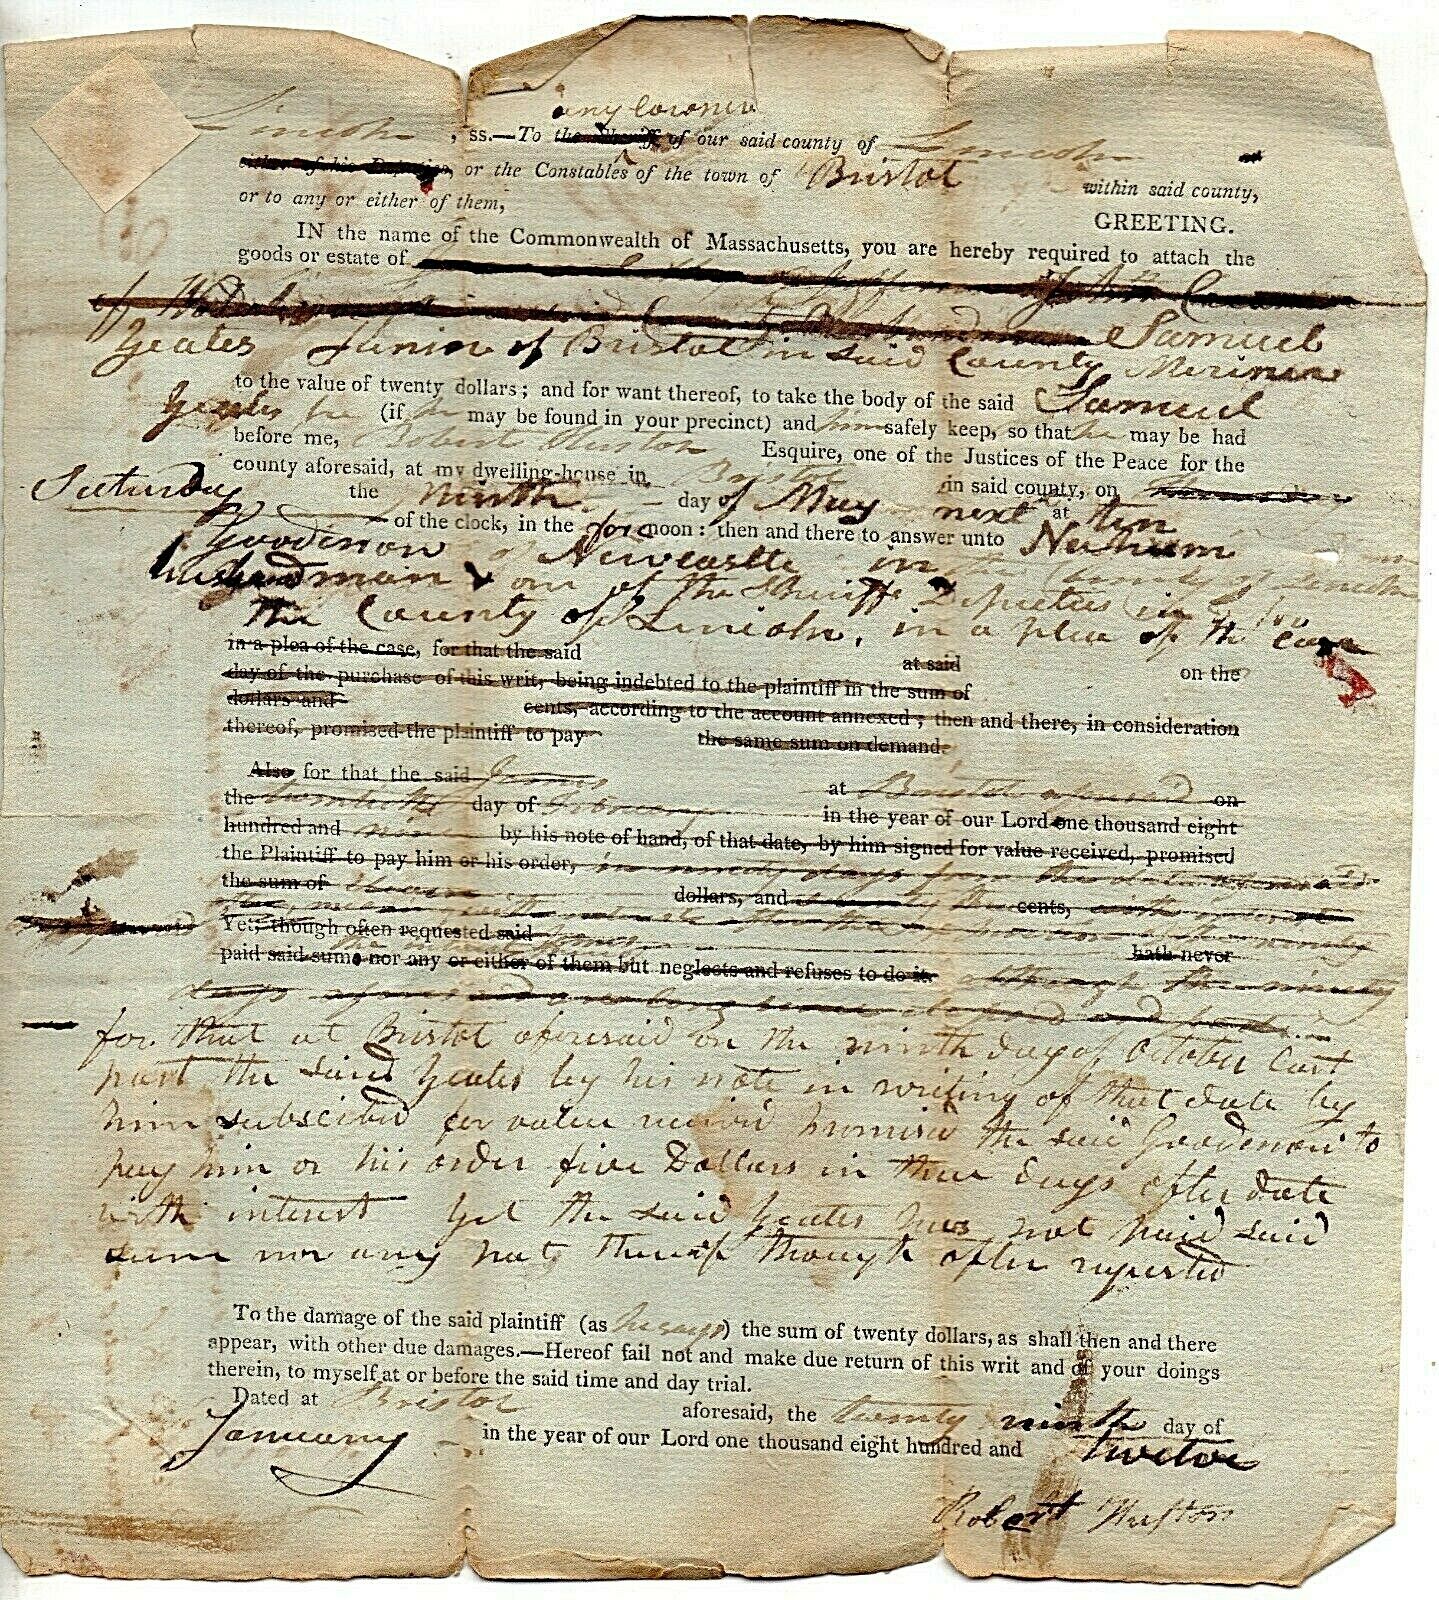 any Coroner
Lincoln, ss.—To the Sheriff of our said county of Lincoln
either of his Deputies, or the Constables of the town of Bristol within said county,
or to any or either of them, GREETING.
IN the name of the Commonwealth of Massachusetts, you are hereby required to attach the
goods or estate of
Samuel
Yeates Junior of Bristol in said County Mariner
to the value of twenty dollars; and for want thereof, to take the body of the said Samuel
Yeates (if he may be found in your precinct) and him safely keep, so that he may be had
before me, Robert Huston Esquire, one of the Justices of the Peace for the
county aforesaid, at my dwelling-house in Bristol in said county, on
Saturday the ninth day of May next at ten
of the clock, in the forenoon: then and there to answer unto Nahum
Goodenow of Newcastle in the County of Lincoln
husbandman & one of the Sheriffs Deputies in &
the County of Lincoln, in a plea of the case
in a plea of the case, for that the said at said on the
day of the purchase of this writ, being indebted to the plaintiff in the sum of
dollars and cents, according to the account annexed; then and there, in consideration
thereof, promised the plaintiff to pay the same sum on demand.
Also for that the said James at Bristol aforesaid on
the twentieth day of February in the year of our Lord one thousand eight
hundred and nine by his note of hand, of that date, by him signed for value received, promised
the Plaintiff to pay him or his order, in ninety days from the date
the sum of dollars, and cents,
Yet, though often requested said James hath never
paid said sums nor any or either of them but neglects and refuses to do it. although the ninety
days
for that at Bristol aforesaid on the ninth day of October last
past the said Yeates by his note in writing of that date by
him subscibed for value receivd promisd the said Goodenow to
pay him or his order five Dollars in three days after date
with interest Yet the said Yeates has not paid said
sum nor any part thereof though often requested
To the damage of the said plaintiff (as he says) the sum of twenty dollars, as shall then and there
appear, with other due damages.—Hereof fail not and make due return of this writ and of your doings
therein, to myself at or before the said time and day trial.
Dated at Bristol aforesaid, the twenty ninth day of
January in the year of our Lord one thousand eight hundred and twelve
Robert Huston